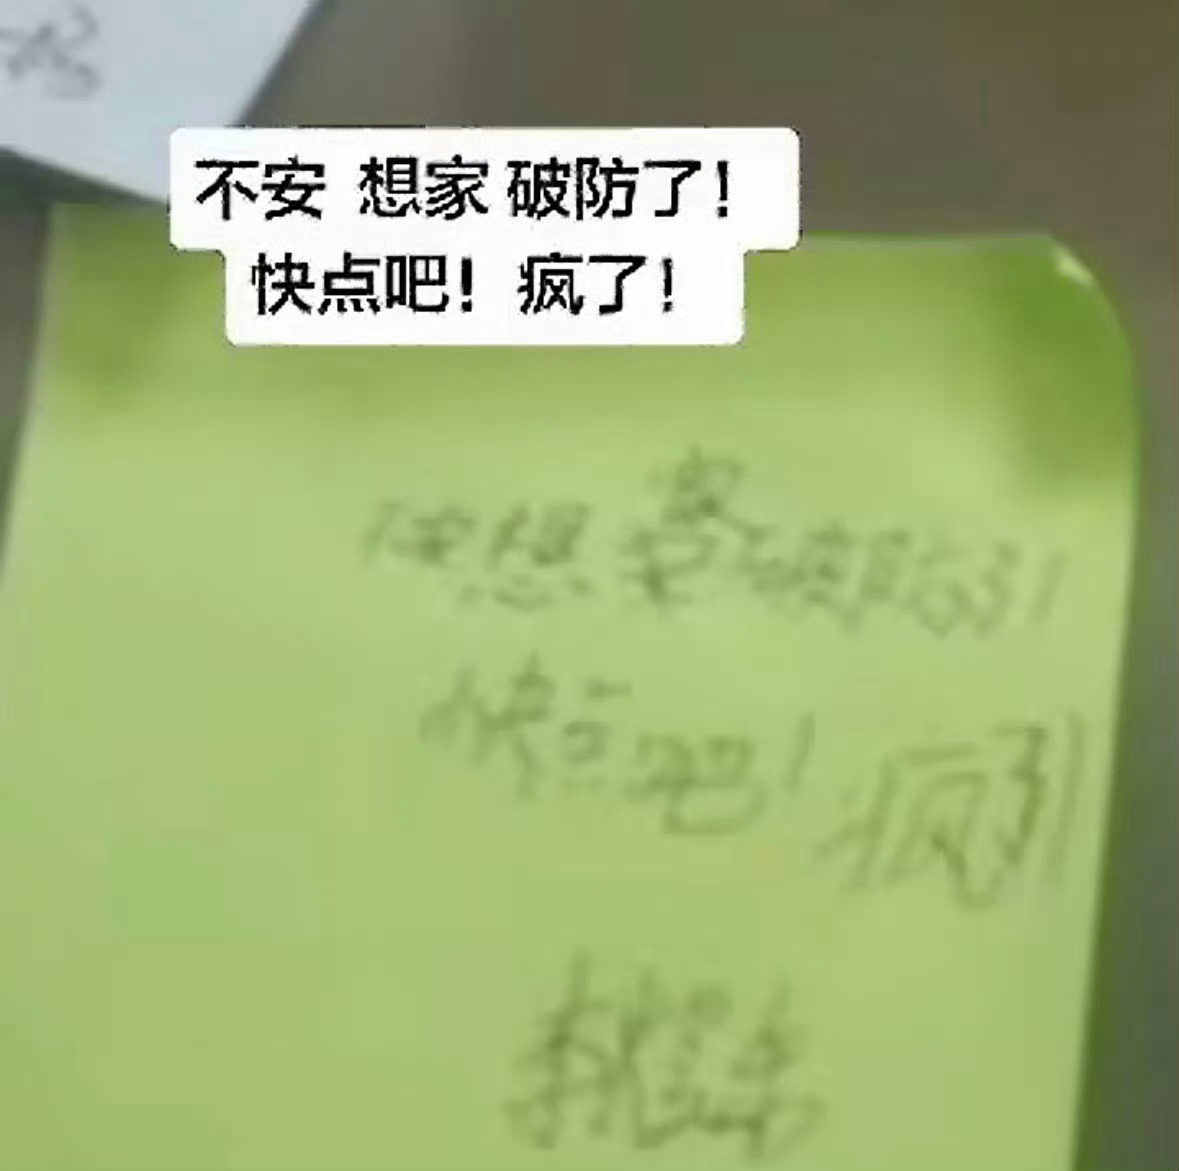 不安 想家 破防了！
快点吧！疯了！
不安想家 破防了！
快点吧！疯了！